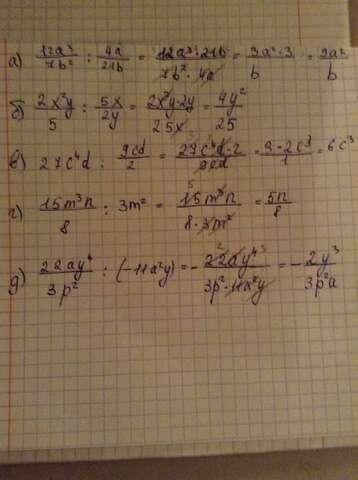 а) 12a³/7b² : 4a/21b = 12a³·21b/7b²·4a = 3a²·3/b = 9a²/b
б) 2x²y/5 : 5x/2y = 2x²y·2y/25x = 4y²/25
в) 27c⁴d : 9cd/2 = 27c⁴d·2/9cd = 3·2c³/1 = 6c³
г) 15m³n/8 : 3m² = 15m³n/8·3m² = 5n/8
д) 22ay⁴/3p² : (-11a²y) = - 22ay⁴/3p²·11a²y = - 2y³/3p²a